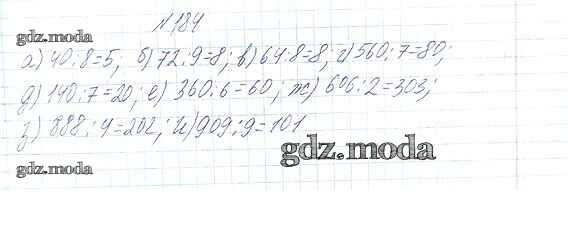 №184
gdz.moda
а) 40:8=5; б) 72:9=8; в) 64:8=8; г) 560:7=80;
д) 140:7=20; е) 360:6=60; ж) 606:2=303;
gdz.moda
з) 888:4=202; и) 909:9=101
gdz.moda
gdz.moda